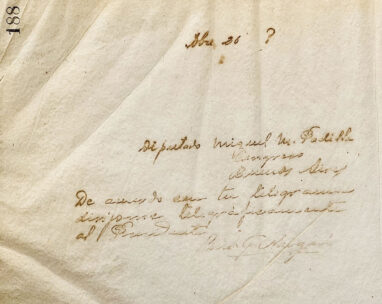 188
Abre 26 ?
Diputado Miguel M. Padilla
Congreso
Buenos Aires
De acuerdo con tu telegrama
telegráficamente
al Presidente